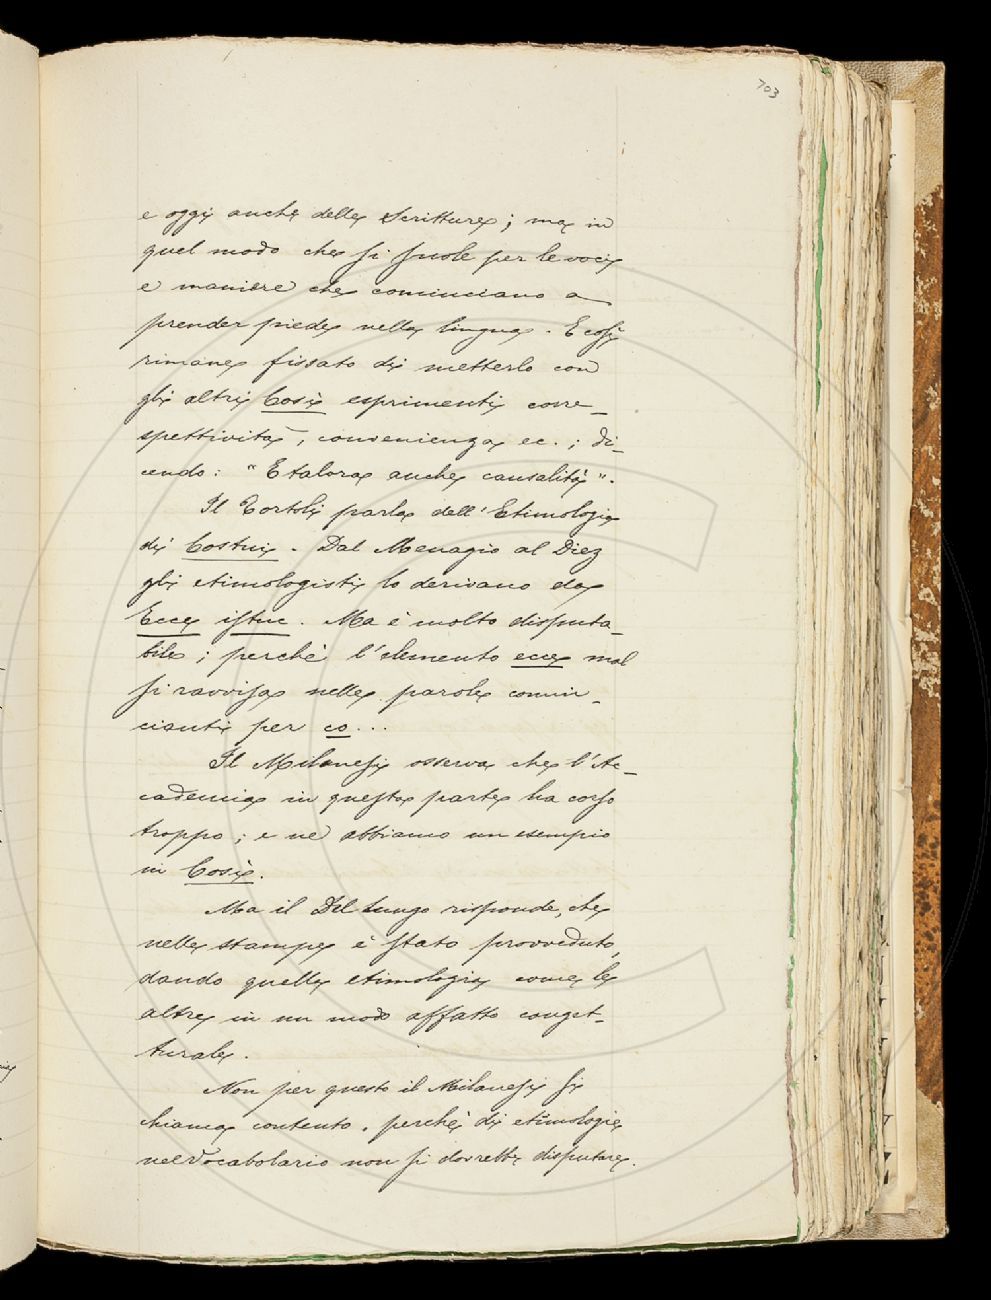 703
e oggi anche delle Scritture; ma in
quel modo che si suole per le voci
e maniere che cominciano a
prender piede nella lingua. E così
rimane fissato di metterlo con
gli altri Così esprimenti corre-
spettività, convenienza ec.; di-
cendo: "E talora anche causalità".
Il Tortoli parla dell'Etimologia
di Costui. Dal Menagio al Diez
gli etimologisti lo derivano da
Ecce istuc. Ma è molto disputa-
bile; perchè l'elemento ecce mal
si ravvisa nelle parole comin-
cianti per co...
Il Milanesi osserva che l'Ac-
cademia in questa parte ha corso
troppo; e ne abbiamo un esempio
in Così.
Ma il Del Lungo risponde, che
nelle stampe è stato provveduto,
dando quella etimologia come le
altre in un modo affatto conget-
turale.
Non per questo il Milanesi si
chiama contento, perchè di etimologie
nel Vocabolario non si dovrebbe disputare.